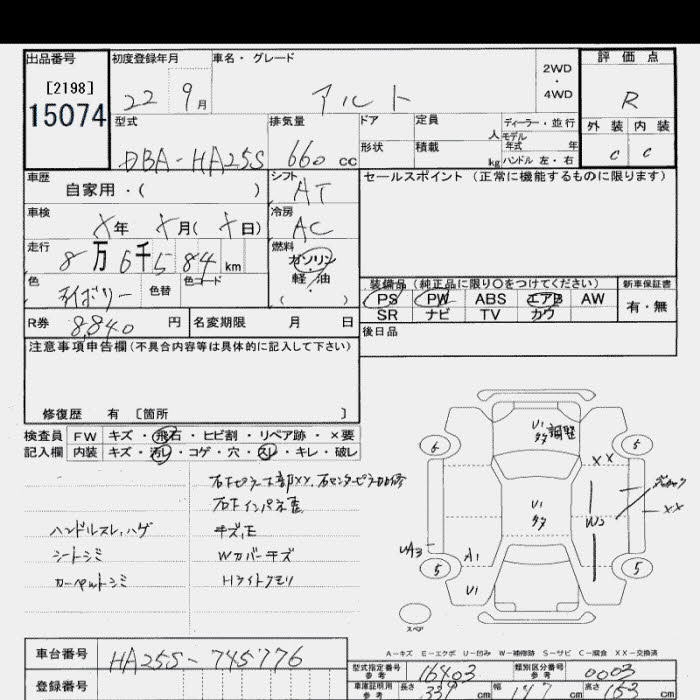 出品番号 初度登録年月 車名・グレード 評価点
[2198] 15074 22 9月 アルト 2WD・4WD R
型式 排気量 ドア 定員 人 ディーラー・並行 外装 内装
DBA-HA25S 660 cc 形状 積載 kg モデル年式 年 ハンドル 左・右 C C
車歴 自家用・( ) シフト AT セールスポイント (正常に機能するものに限ります)
車検 X年 X月( X日) 冷房 AC
走行 8万6千584 km 燃料 ガソリン・軽油 ( )
色 アイボリー 色替 色コード
装備品 (純正品に限り〇をつけてください) 新車保証書
PS PW ABS エアB AW 有・無
SR ナビ TV カワ
R券 8,840 円 名変期限 月 日 後日品
注意事項申告欄 (不具合内容等は具体的に記入して下さい)
修復歴 有 〔箇所 〕
検査員 FW キズ・飛石・ヒビ割・リペア跡・×要
記入欄 内装 キズ・汚レ・コゲ・穴・スレ・キレ・破レ
右Fピラー下部XX、右センターピラー
右Fインパネ
ハンドルスレ、ハゲ キズ、E
シートシミ Wカバーキズ
カーペットシミ Hライトクモリ
U1 タタ 調整
6 5
XX
U1 タタ W2 XX
UA3 A1
5 5
U1
スペア
A-キズ E-エクボ U-凹み W-補修跡 S-サビ C-腐食 XX-交換済
車台番号 HA25S-745776
型式指定番号 参考 16403 類別区分番号 参考 0003
登録番号 車庫証明用 参考 長さ 339 cm 幅 147 cm 高さ 153 cm